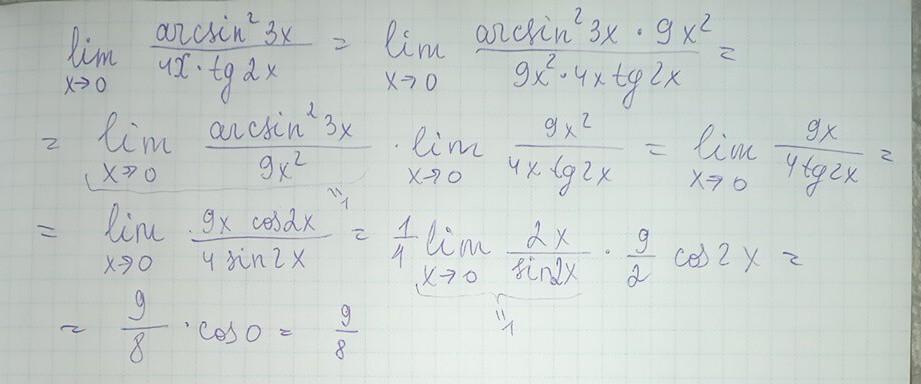 lim x→0 arcsin² 3x / 4x · tg 2x = lim x→0 arcsin² 3x · 9x² / 9x² · 4x tg 2x =
= lim x→0 arcsin² 3x / 9x² · lim x→0 9x² / 4x tg 2x = lim x→0 9x / 4 tg 2x =
"1
= lim x→0 9x cos 2x / 4 sin 2x = 1/4 lim x→0 2x / sin 2x · 9/2 cos 2x =
"1
= 9/8 · cos 0 = 9/8